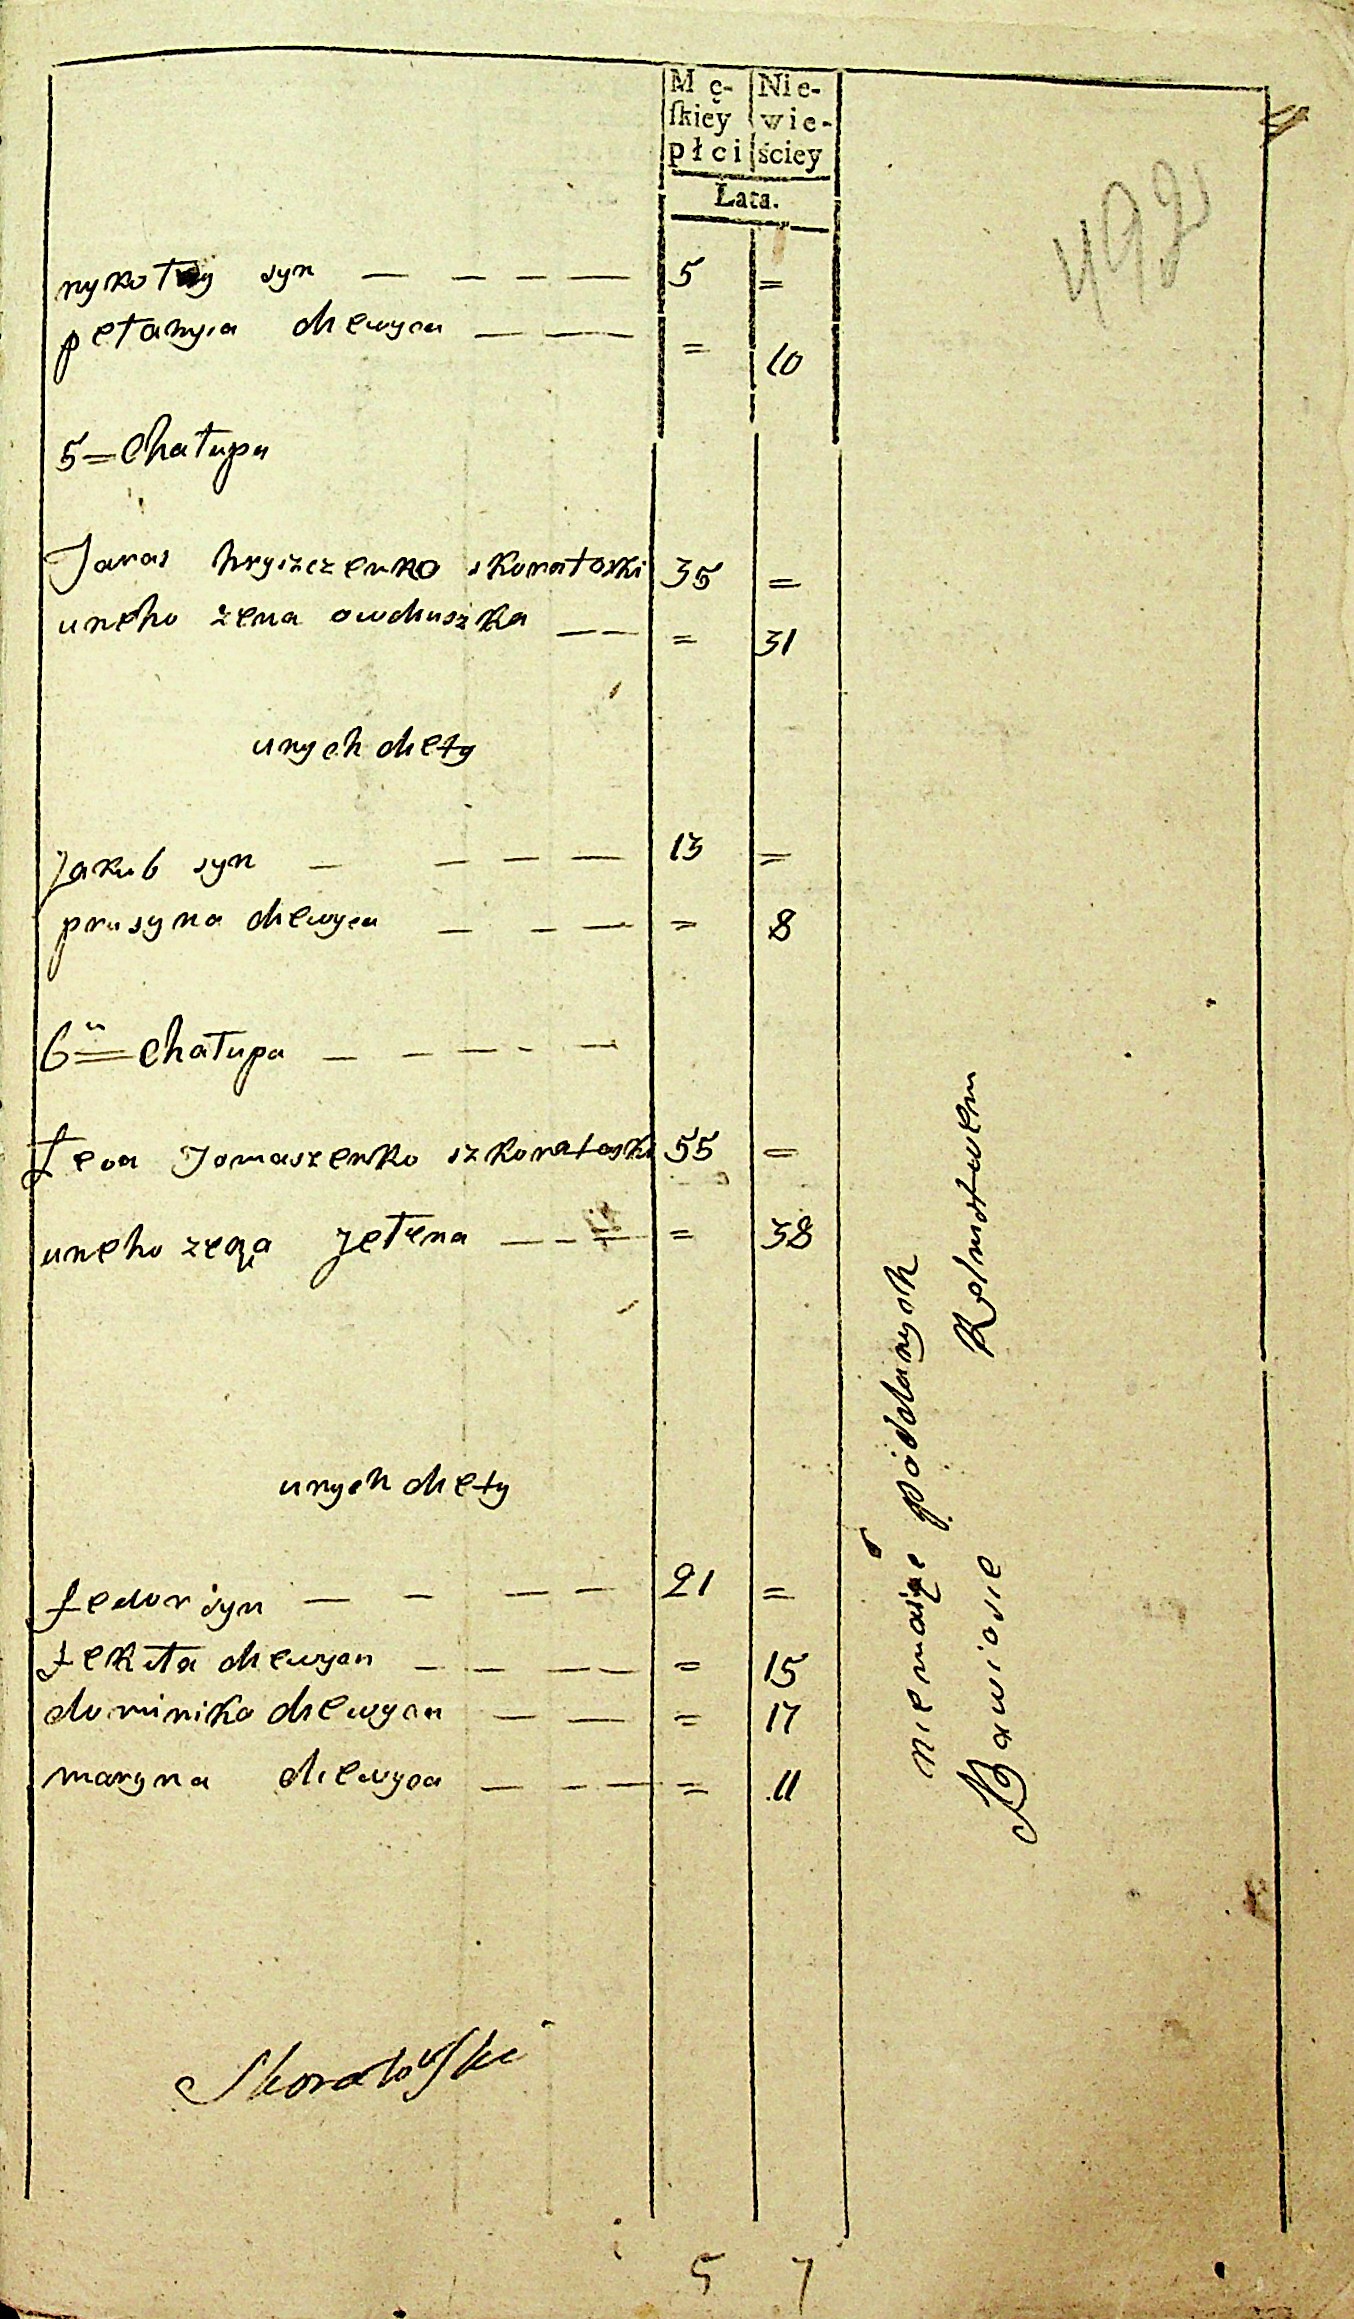 Mę- Nie-
ſkiey wie-
płci ściey
Lata.
492
nykołay syn — — — — 5 =
petanyia diewyca — — — = 10
5 = Chałupa
Taras hryszczenko skorałoski 35 =
uneho zena owdiuszka — — = 31
unych diety
Jakub syn — — — — 13 =
prusyna diewyca — — — = 8
6a = Chałupa — — — - —
Lewa Tomaszenko szkorałoski 55 =
uneho zena Jełena — - — = 38
unych diety
fedor syn — — — — 21 =
fekuła diewyca — — — — = 15
dominika diewyca — — = 17
maryna diewyca — — — = 11
niemaiąc póddanych
Bawiąsie Rolnictwem
Skorałoſki
5 7